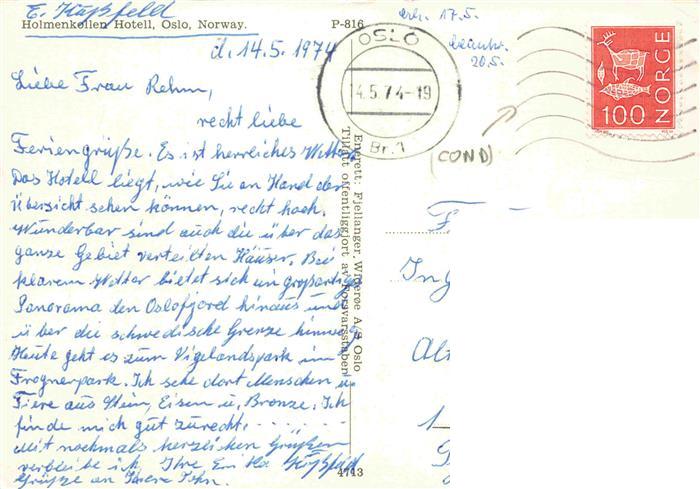 E. Küßfeld
Holmenkollen Hotell, Oslo, Norway. P-816
erh. 17.5.
20.5.
d. 14.5.1974
OSLO
14.5.74-19
Br. 1
100 NORGE
(COND)
Liebe Frau Rehm,
recht liebe
Feriengrüße. Es ist herreiches Wetter.
Das Hotell liegt, wie Sie an Hand der
Übersicht sehen können, recht hoch.
Wunderbar sind auch die über das
ganze Gebiet verteilten Häuser. Bei
klarem Wetter bietet sich ein großartiges
Panorama den Oslofjord hinaus und
über die schwedische Grenze hinweg.
Heute geht es zum Vigelandspark im
Frognerpark. Ich sehe dort Menschen u.
Tiere aus Stein, Eisen u. Bronze. Ich
finde mich gut zurecht. - - - - -
Mit nochmals herzlichen Grüßen
verbleibe ich, Ihre Erika Küßfeld
Grüße an Ihren Sohn.
Enerett: Fjellanger, Widerøe A/S Oslo
Tillatt offentliggjort av Forsvarsstaben
4713
F
Ing
1